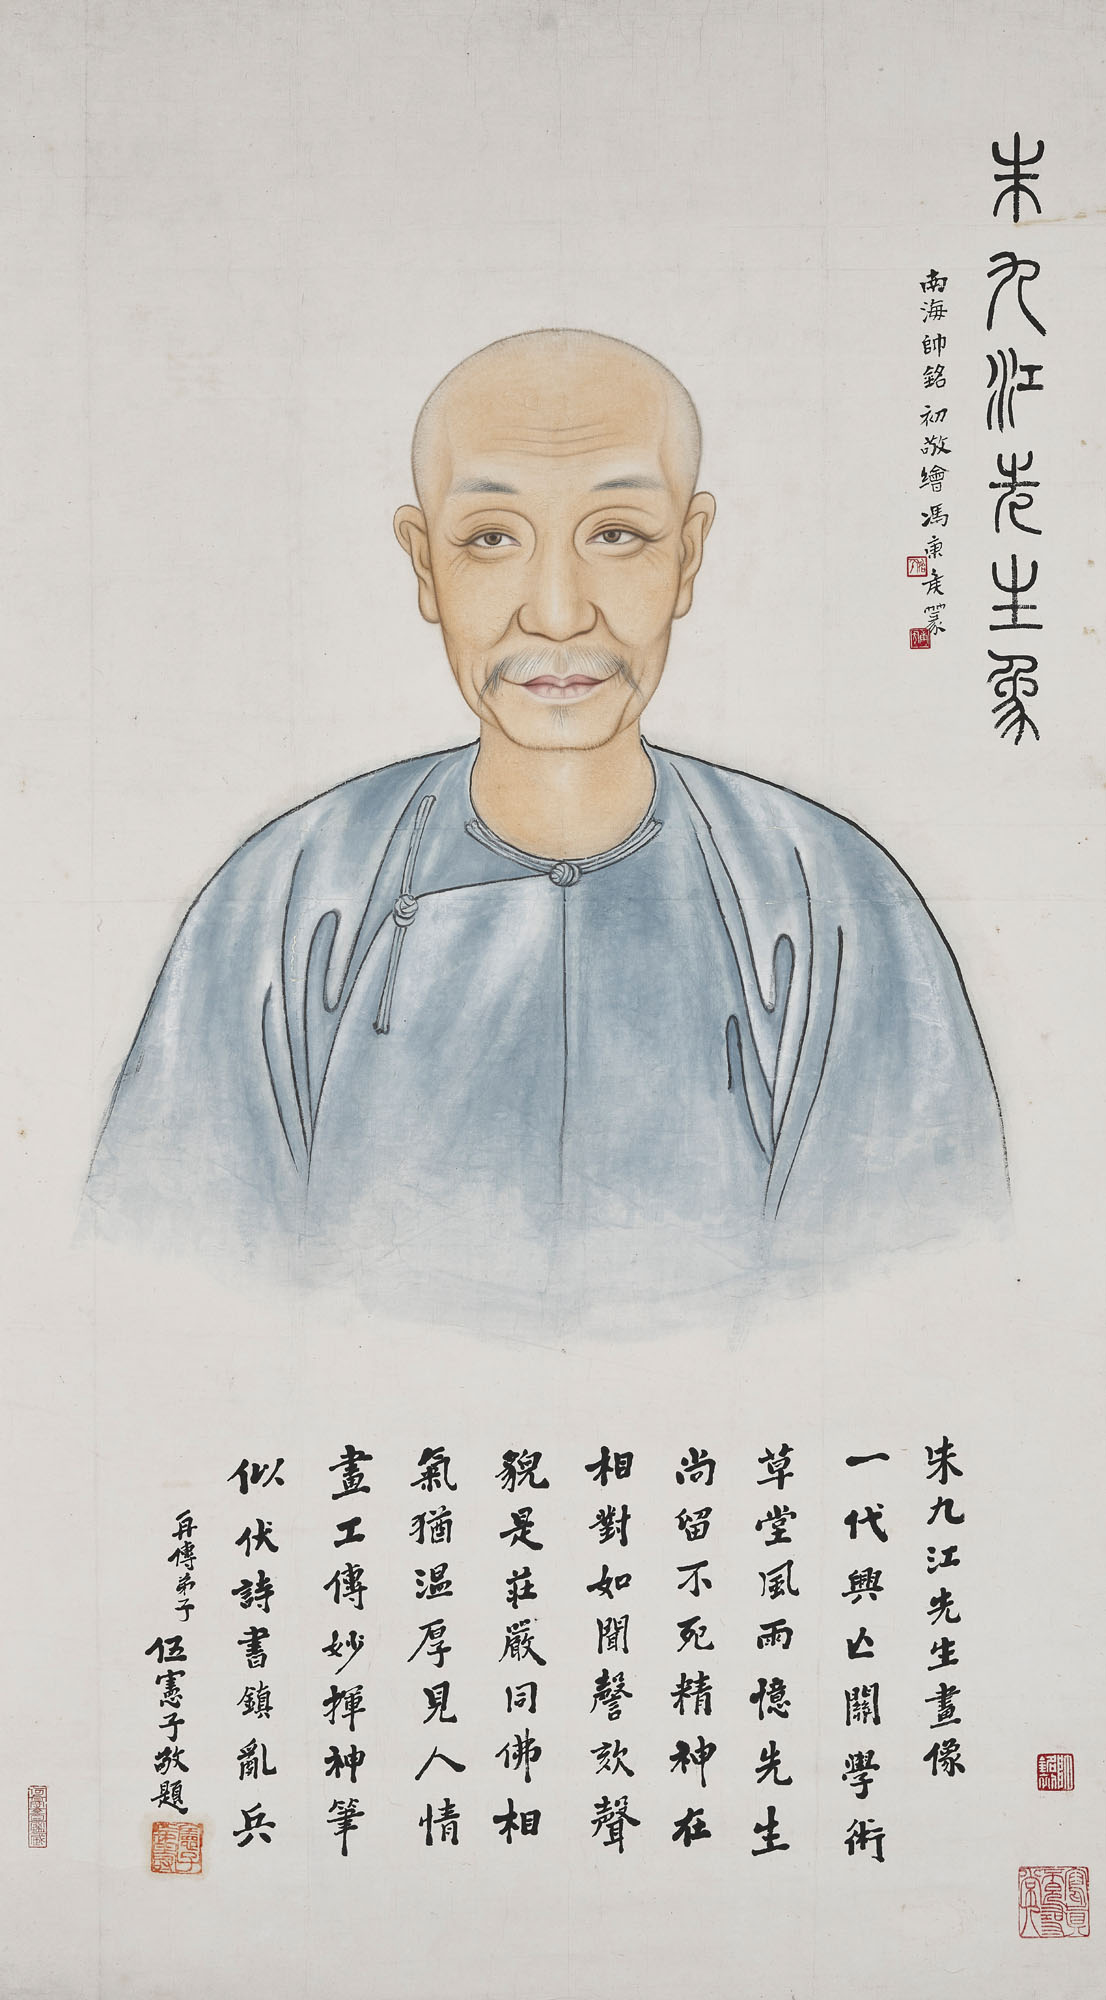 朱九江先生象
南海帥銘初敬繪馮康矦篆
朱九江先生畫像
一代興亡關學術
草堂風雨憶先生
尚留不死精神在
相對如聞謦欬聲
貌是莊嚴同佛相
氣猶温厚見人情
畫工傳妙揮神筆
似伏詩書鎮亂兵
再傳弟子伍憲子敬題